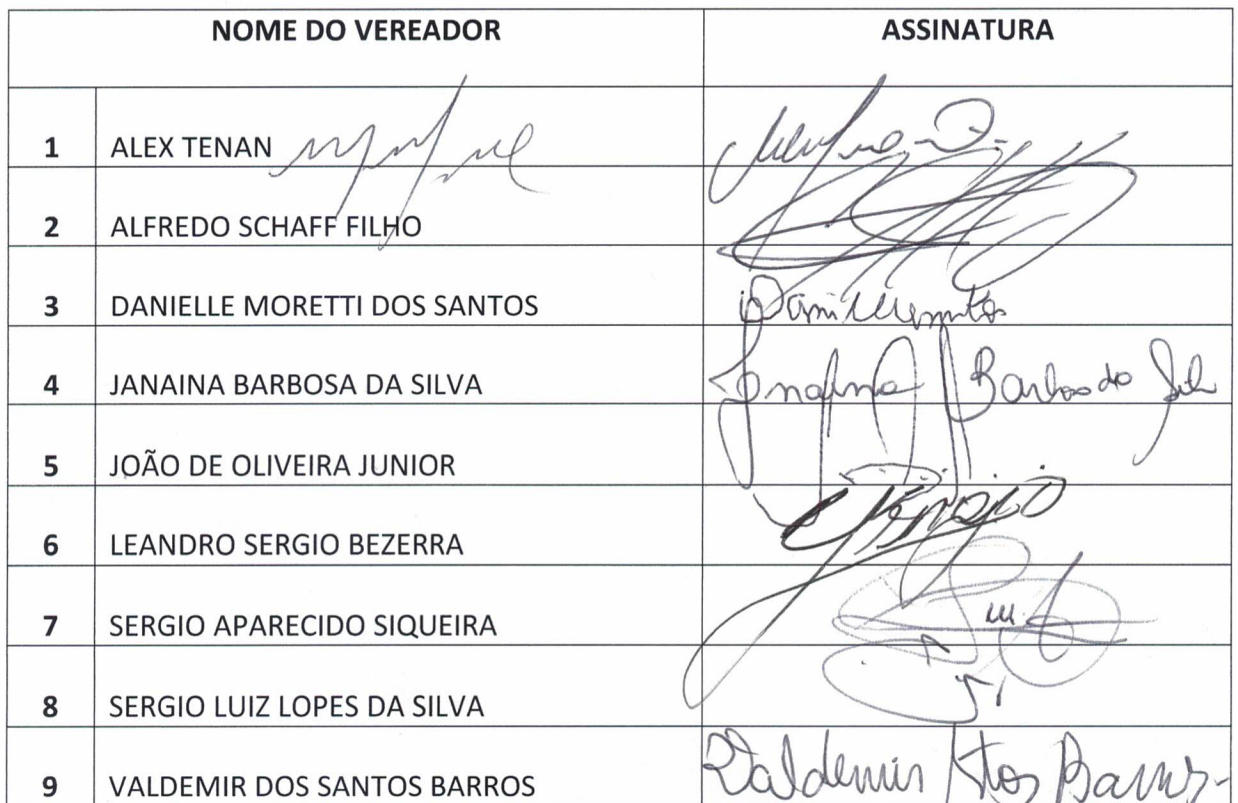 NOME DO VEREADOR ASSINATURA
1 ALEX TENAN
2 ALFREDO SCHAFF FILHO
3 DANIELLE MORETTI DOS SANTOS
4 JANAINA BARBOSA DA SILVA Janaina Barbosa da Silva
5 JOÃO DE OLIVEIRA JUNIOR
6 LEANDRO SERGIO BEZERRA
7 SERGIO APARECIDO SIQUEIRA
8 SERGIO LUIZ LOPES DA SILVA
9 VALDEMIR DOS SANTOS BARROS Valdemir Stos Barros